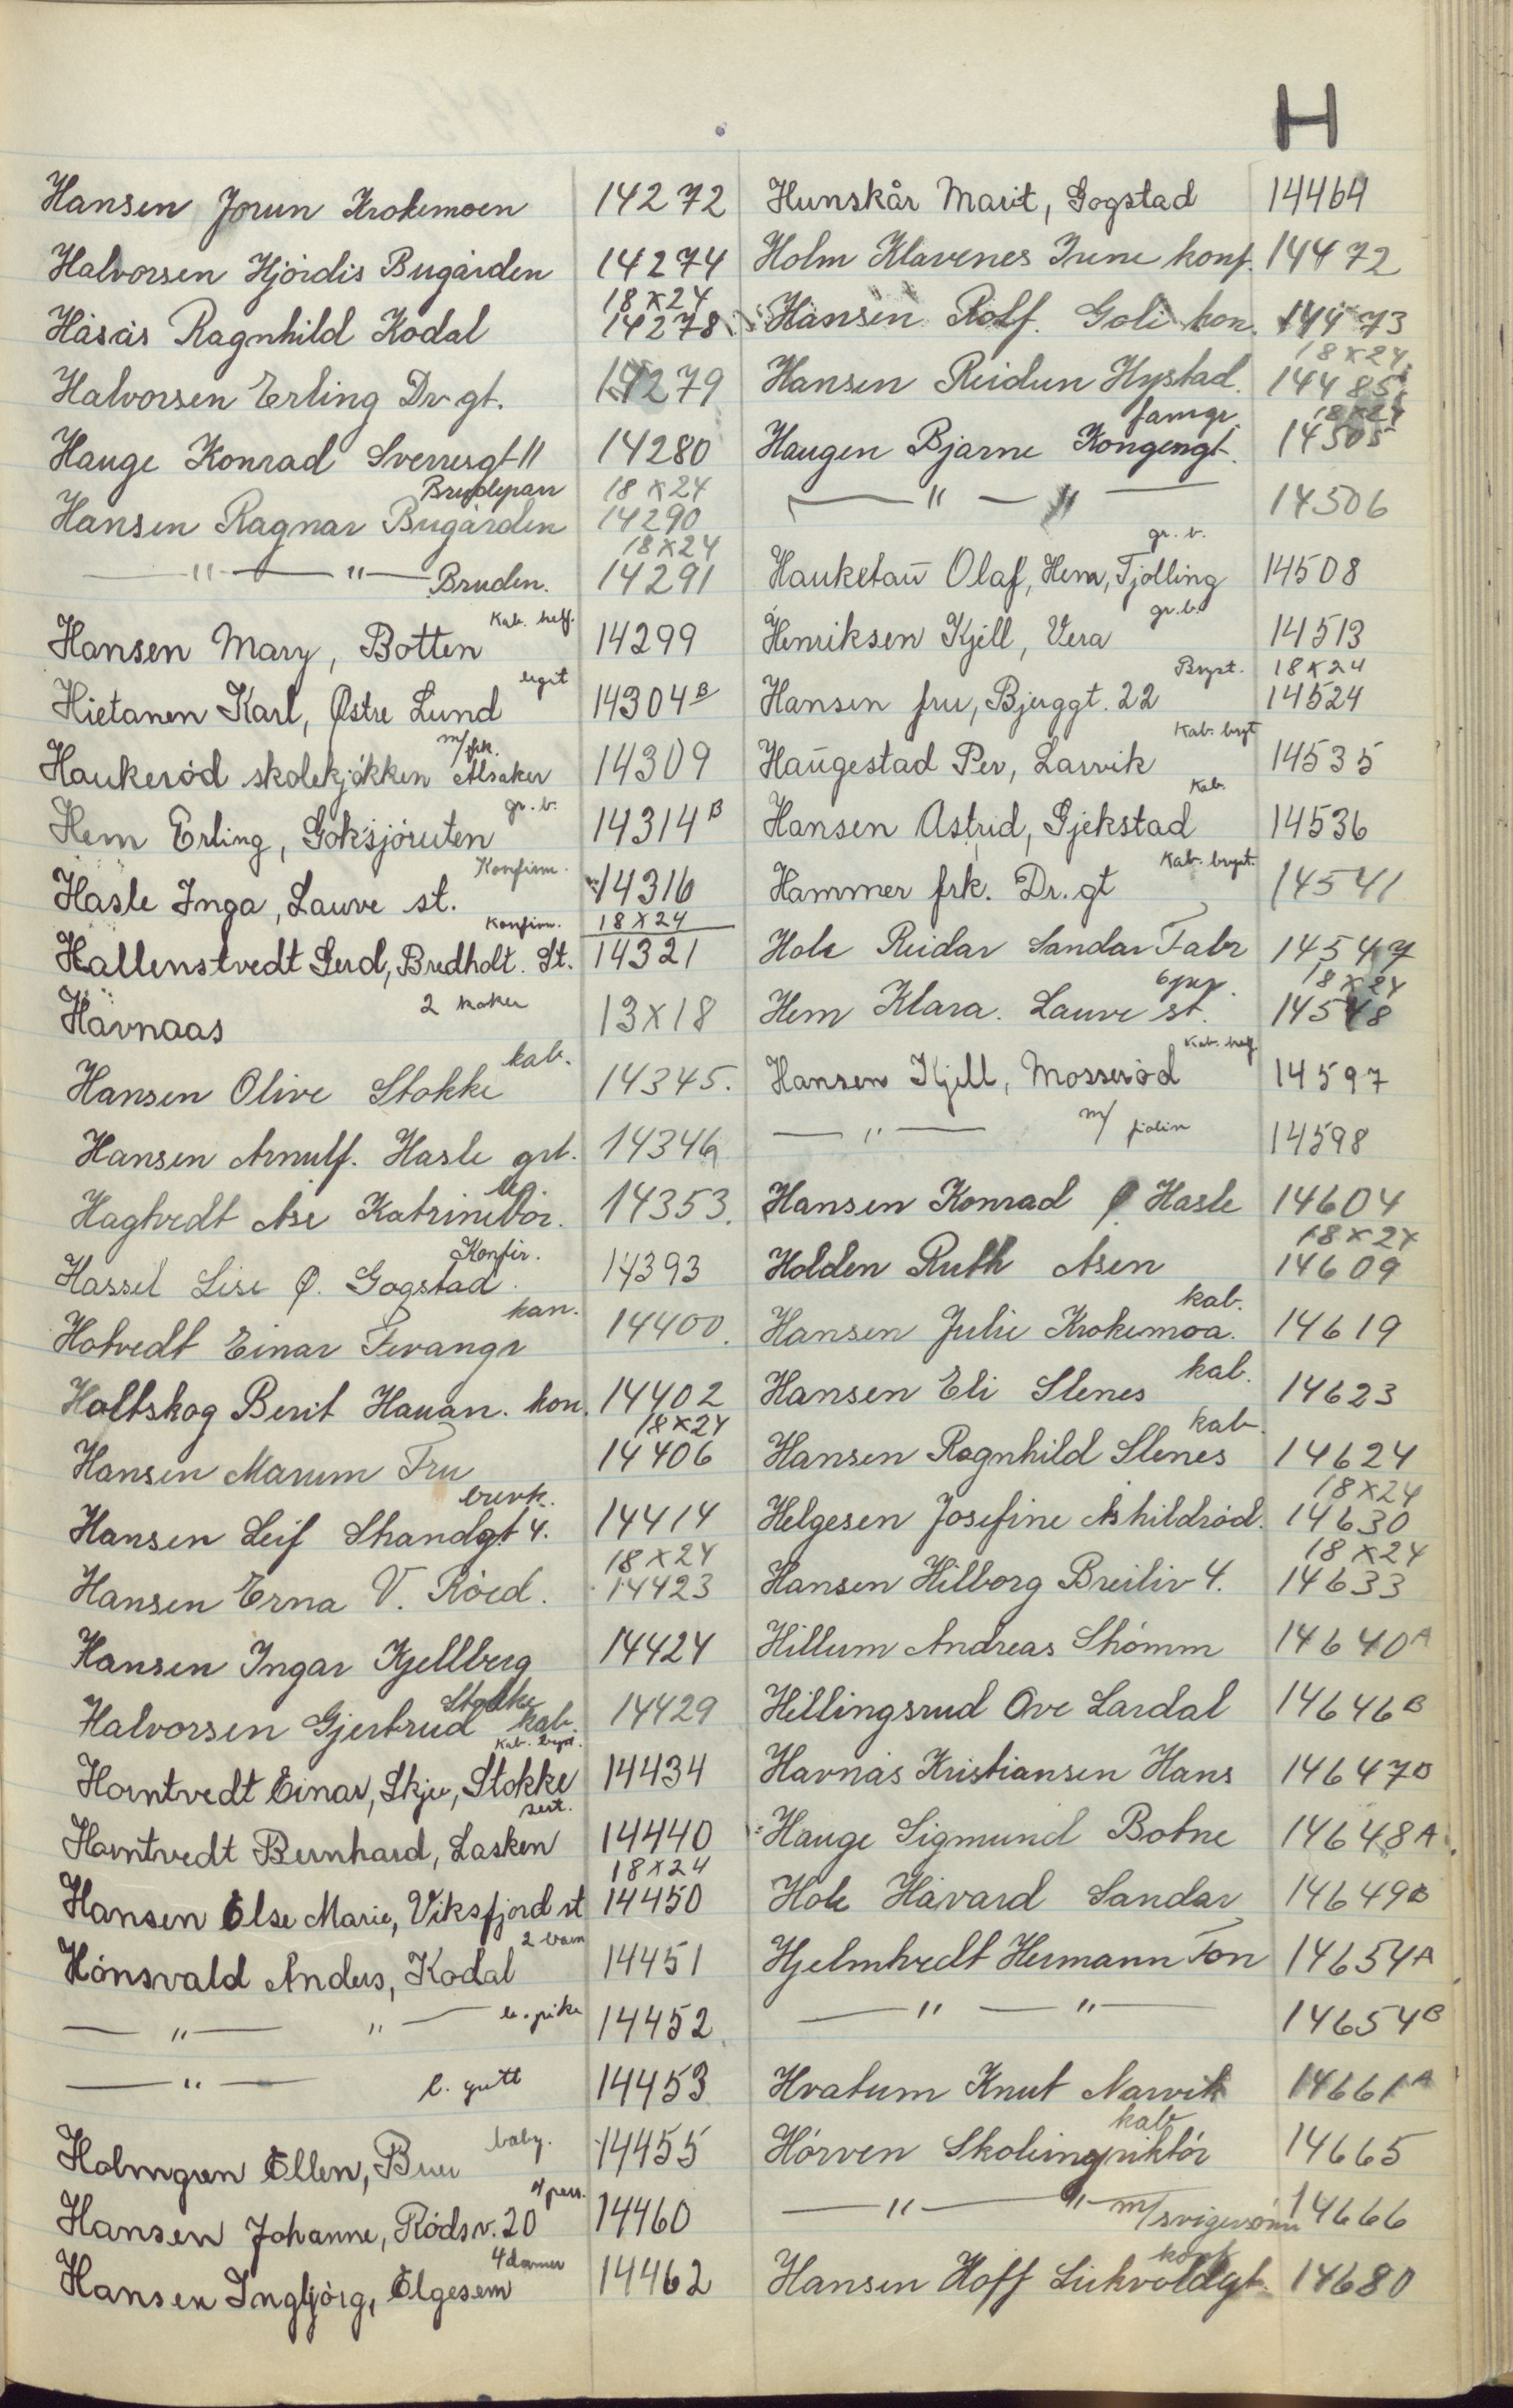 H
Hansen Jorun Krokemoen 14272
Halvorsen Hjördis Bugården 14274
18x24
Håsås Ragnhild Kodal 14278
Halvorsen Erling Dr. gt. 14279
Hauge Konrad Sverresgt 11 14280
Brudepar 18x24
Hansen Ragnar Bugården 14290
18x24
— " — " — Bruden. 14291
Kab. helf.
Hansen Mary, Botten 14299
Hietanen Karl, Østre Lund 14304 B
m/frk.
Haukeröd skolekjökken Alsaker 14309
gr. b.
Hem Erling, Goksjöruten 14314 B
Konfirm.
Hasle Inga, Lauve st. 14316
Konfirm. 18x24
Hallenstvedt Gerd, Bredholt. St. 14321
2 kaker
Håvnaas 13x18
kab.
Hansen Olive Stokke 14345.
Hansen Arnulf. Hasle grt. 14346
Hagtvedt Åse Katrinebor. 14353.
Konfir.
Hassel Lise Ø. Gogstad. 14393
kan.
Hotvedt Einar Fevangr 14400.
Holtskog Berit Hauan. kon. 14402
18x24
Hansen Marum Fru 14406
brevk.
Hansen Leif Skandgt 4. 14414
18x24
Hansen Erna V. Röed. 14423
Hansen Ingar Kjellberg 14424
Stokke
Halvorsen Gjertrud kab. 14429
Kab. bryst.
Horntvedt Einar, Skjee, Stokke 14434
sert.
Horntvedt Bernhard, Lasken 14440
18x24
Hansen Else Marie, Viksfjord st 14450
2 barn
Hönsvald Anders, Kodal 14451
— " — " — l. pike 14452
— " — l. gutt 14453
baby.
Holmgren Ellen, Bruu 14455
4 pers.
Hansen Johanne, Rödsv. 20 14460
4 damer
Hansen Ingbjörg, Elgesem 14462
Hunskår Marit, Gogstad 14464
Holm Klavenes Irene konf. 14472
Hansen Rolf. Goli kon. 14473
18x24
Hansen Reidun Hystad. 14485
famgr. 18x24
Haugen Bjarne Kongengt. 14505
— " — " — 14506
gr. b.
Hauketau Olaf, Hem, Tjölling 14508
gr. b.
Henriksen Kjell, Vera 14513
Bryst. 18x24
Hansen fru, Bjerggt. 22 14524
Kab. bryst
Haugestad Per, Larvik 14535
Kab.
Hansen Astrid, Gjekstad 14536
Kab. bryst.
Hammer frk. Dr. gt 14541
Hole Reidar Sandar Fabr 14547
18x24
Hem Klara. Lauve st. 14548
Kab. helf
Hansen Kjell, Mosseröd 14597
— " — m/ fiolin 14598
Hansen Konrad Ø Hasle 14604
18x24
Holden Ruth Åsen 14609
kab.
Hansen Julie Krokemoa. 14619
kab.
Hansen Eli Slenes 14623
kab.
Hansen Ragnhild Slenes 14624
18x24
Helgesen Josefine Åshildröd. 14630
18x24
Hansen Hilborg Breiliv 4. 14633
Hillum Andreas Skömm 14640 A
Hillingsrud Ove Lardal 14646 B
Havnås Kristiansen Hans 14647 B
Hauge Sigmund Botne 14648 A.
Hole Håvard Sandar 14649 B
Hjelmtvedt Hermann Ton 14654 A
— " — " — 14654 B
Hvatum Knut Narvik 14661 A
kab
Hörven Skoleinspiktör 14665
— " — " — m/svigersönn 14666
konf
Hansen Hoff Lickvoldgt. 14680